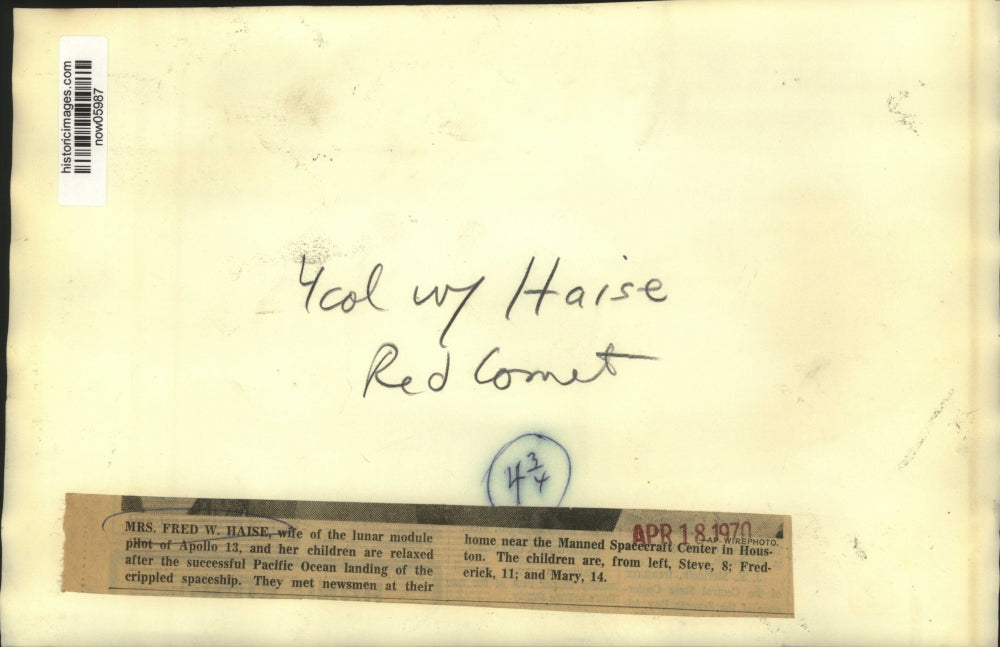 historicimages.com
now05987
4col w/ Haise
Red Comet
4 3/4
APR 18 1970
AP WIREPHOTO.
MRS. FRED W. HAISE, wife of the lunar module
pilot of Apollo 13, and her children are relaxed
after the successful Pacific Ocean landing of the
crippled spaceship. They met newsmen at their
home near the Manned Spacecraft Center in Hous-
ton. The children are, from left, Steve, 8; Fred-
erick, 11; and Mary, 14.